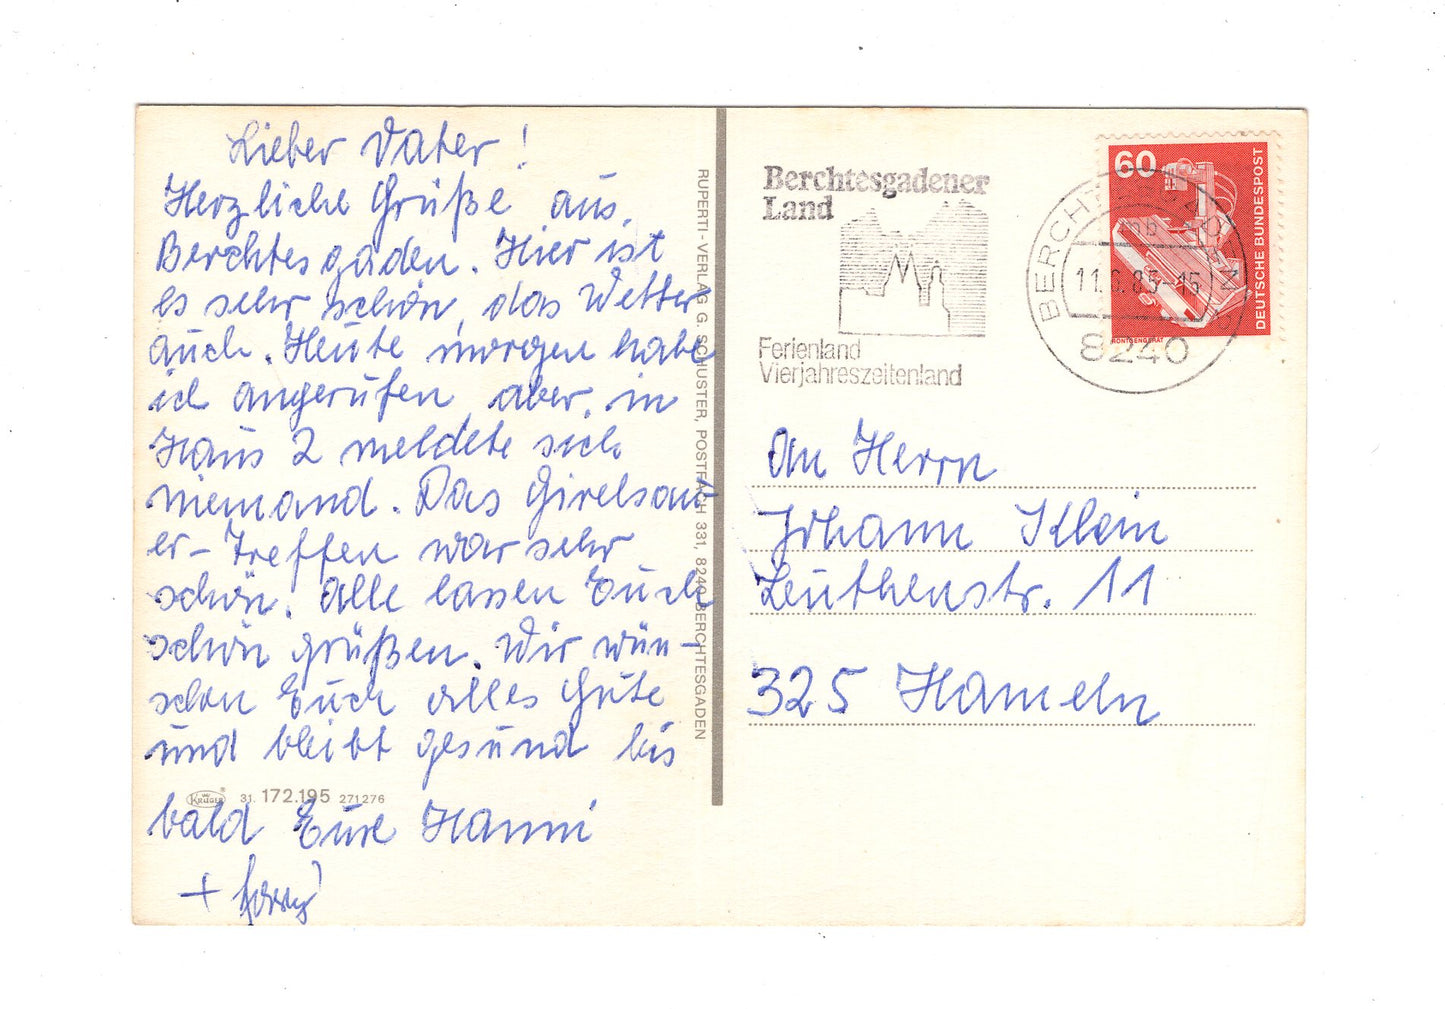 Lieber Vater!
Herzliche Grüße aus
Berchtesgaden. Hier ist
es sehr schön, das Wetter
auch. Heute morgen habe
ich angerufen, aber in
Haus 2 meldete sich
niemand. Das Girelsau-
er-Treffen war sehr
schön. Alle lassen Euch
schön grüßen. Wir wün-
schen Euch alles Gute
und bleibt gesund bis
bald Eure Hanni
+
KRÜGER
31. 172.195 271276
RUPERTI-VERLAG G. SCHUSTER, POSTFACH 331, 8240 BERCHTESGADEN
Berchtesgadener
Land
Ferienland
Vierjahreszeitenland
8240
60
DEUTSCHE BUNDESPOST
RÖNTGENGERÄT
An Herrn
Johann Klein
Leuthenstr. 11
325 Hameln